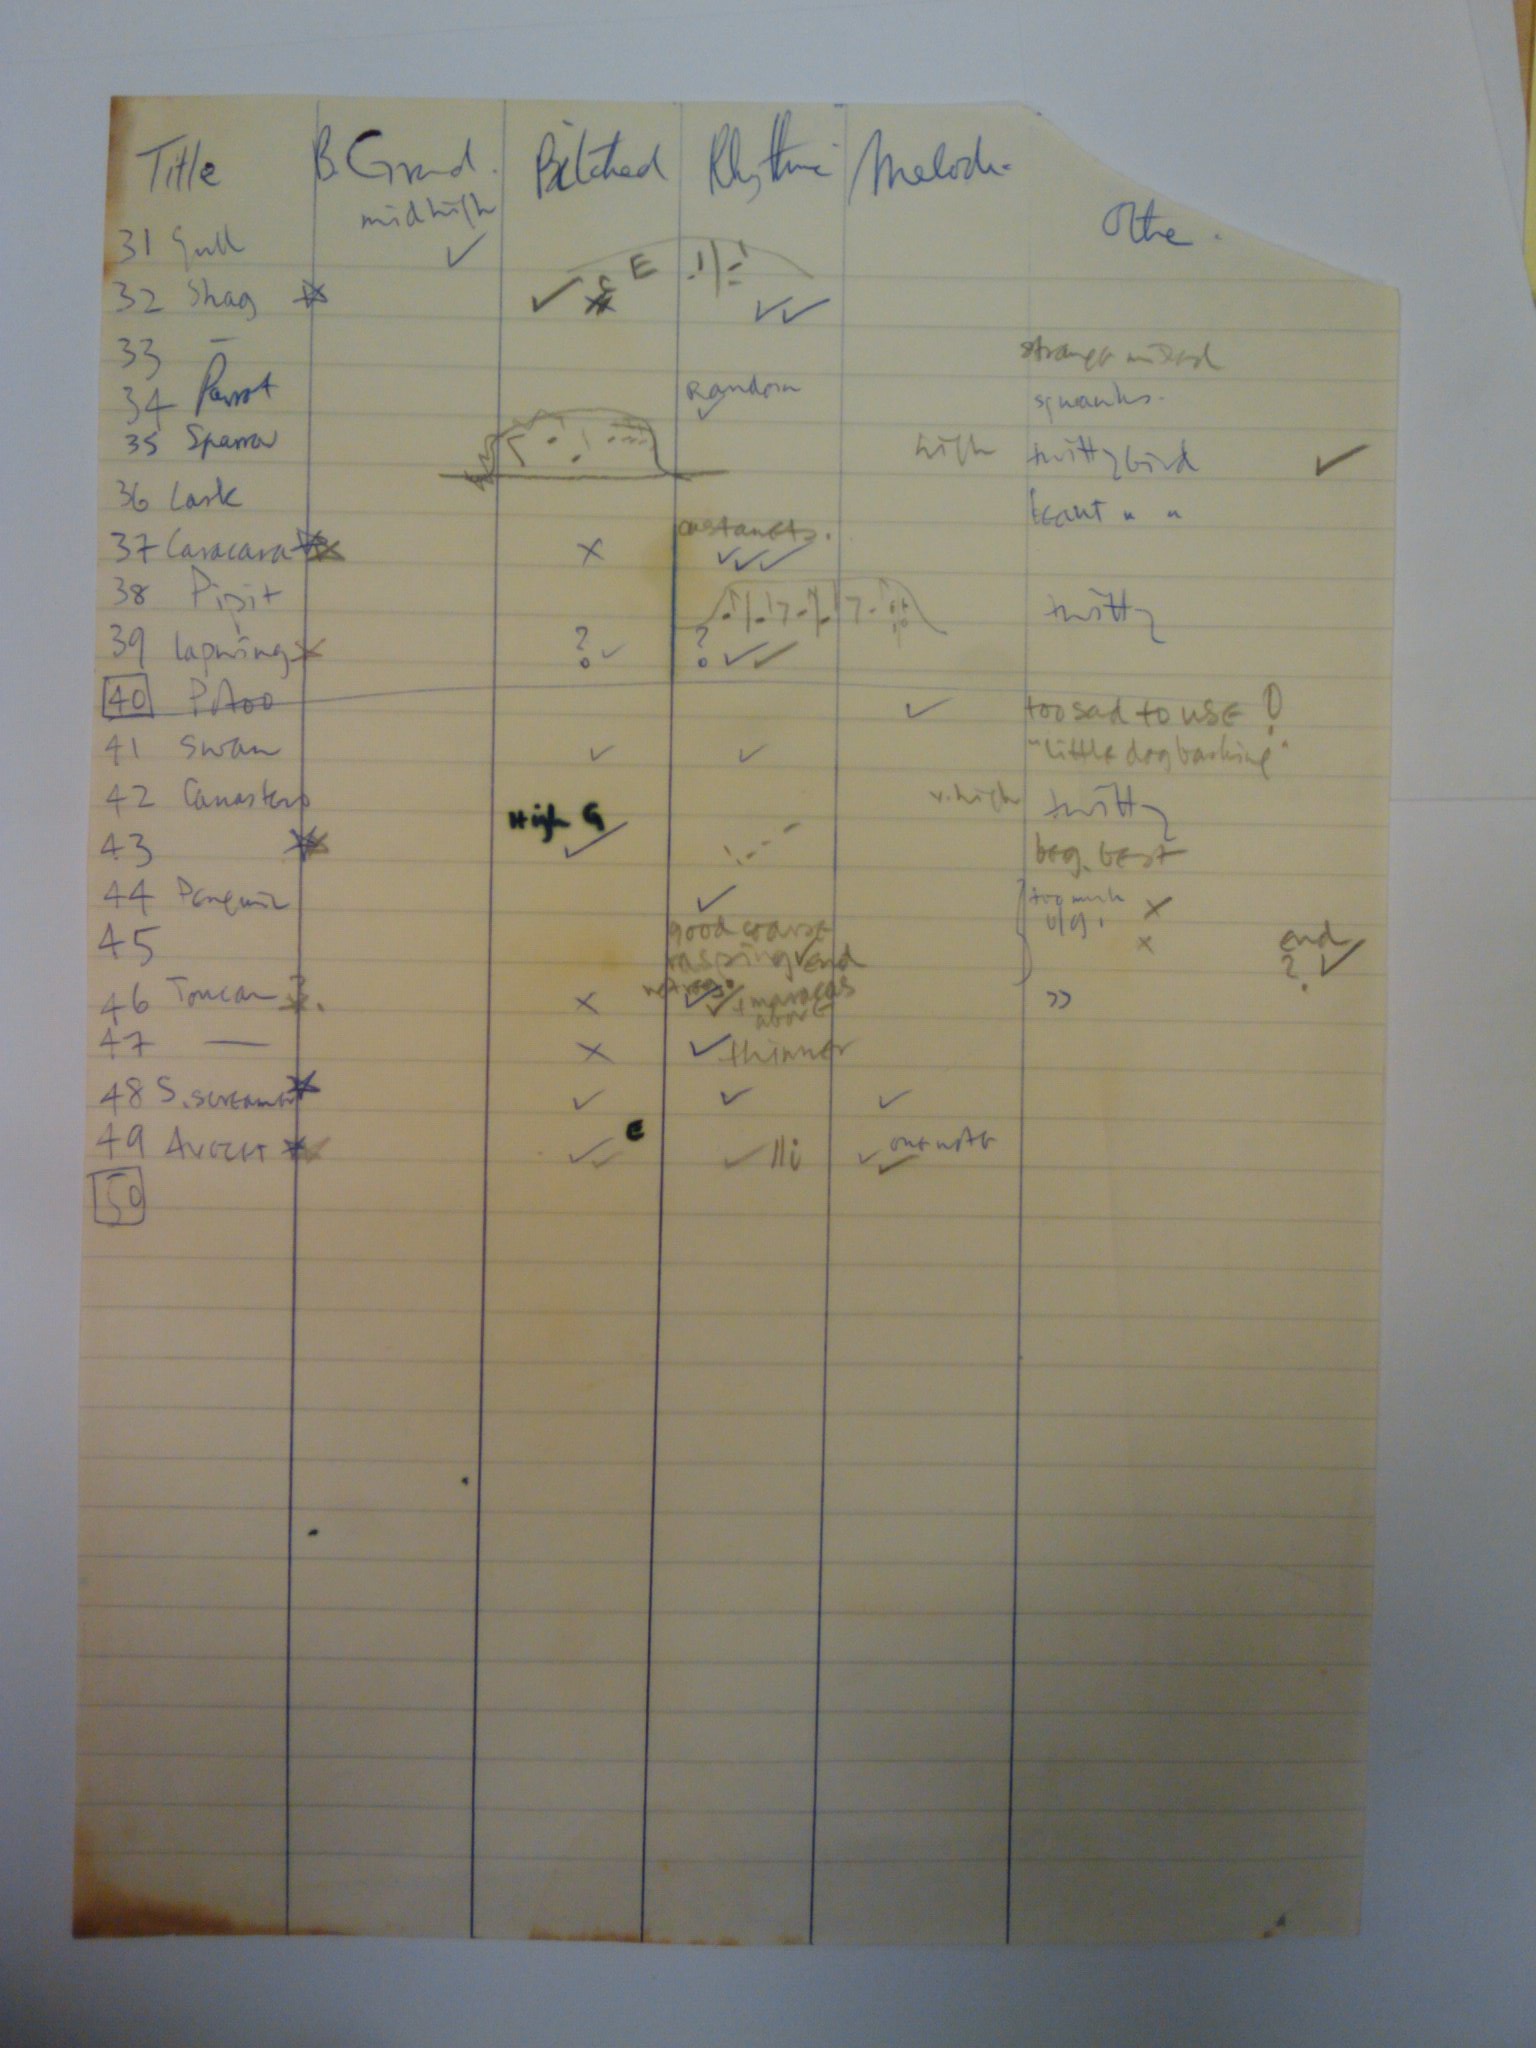 Title B. Ground. Pitched Rhythmic Melodic Other.
mid high
31 Gull ✓
E
32 Shag ✓ ✓✓
33 — strange mixed
34 Parrot random ✓ squawks.
35 Sparrow high twitty bird ✓
36 Lark " "
castanets.
37 Caracara x ✓✓✓
38 Pipit twitty
39 Lapwing x ? ✓ ? ✓✓
40 Potoo ✓ too sad to use!
41 Swan ✓ ✓ "little dog barking"
42 Canastero v. high twitty
High G
43 ✓ beg. best
44 Penguin ✓ too much x
good coarse
45 rasping ✓ end x end ? ✓
46 Toucan x ✓ + maracas above "
47 — x ✓ thinner
48 S. screamer ✓ ✓ ✓
E
49 Avocet ✓✓ ✓ ✓✓ one note
50